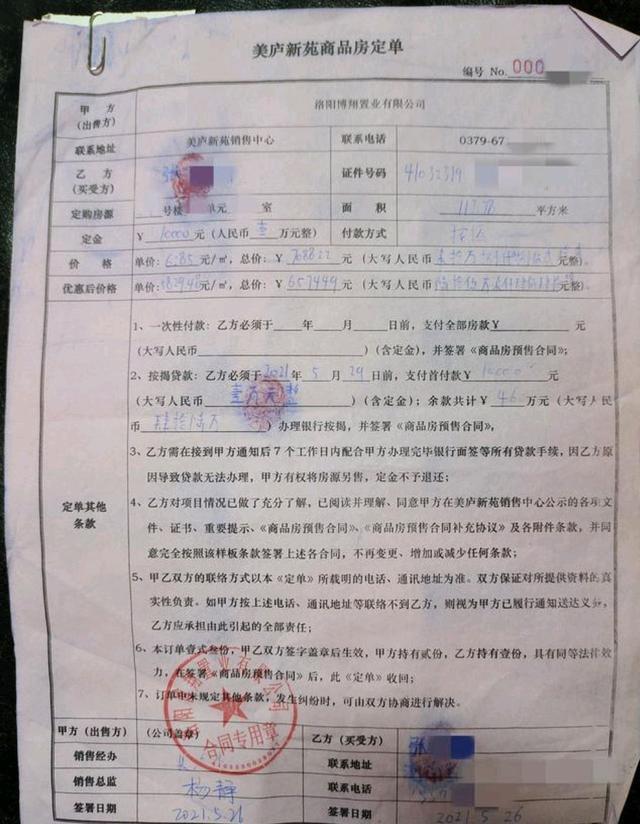 美庐新苑商品房定单
编号 No. 000
甲方 (出售方) 洛阳博翔置业有限公司
联系地址 美庐新苑销售中心 联系电话 0379-67
乙方 (买受方) 张 证件号码
定购房源 号楼 单元 室 面积 平方米
定金 ¥10000元（人民币壹万元整） 付款方式
价格 单价: 元/㎡，总价: ¥708822元（大写人民币 元整）
优惠后价格 单价: 元/㎡，总价: ¥657449元（大写人民币 元整）
定单其他条款
1、一次性付款：乙方必须于 年 月 日前，支付全部房款¥ 元
（大写人民币 ）（含定金），并签署《商品房预售合同》；
2、按揭贷款：乙方必须于2021年5月29日前，支付首付款¥10000元
（大写人民币壹万元整）（含定金）；余款共计¥46万元（大写人民
币肆拾陆万）办理银行按揭，并签署《商品房预售合同》，
3、乙方需在接到甲方通知后7个工作日内配合甲方办理完毕银行面签等所有贷款手续，因乙方原
因导致贷款无法办理，甲方有权将房源另售，定金不予退还；
4、乙方对项目情况已做了充分了解，已阅读并理解、同意甲方在美庐新苑销售中心公示的各项文
件、证书、重要提示、《商品房预售合同》、《商品房预售合同补充协议》及各附件条款，并同
意完全按照该样板条款签署上述各合同，不再变更、增加或减少任何条款；
5、甲乙双方的联络方式以本《定单》所载明的电话、通讯地址为准。双方保证对所提供资料的真
实性负责。如甲方按上述电话、通讯地址等联络不到乙方，则视为甲方已履行通知送达义务，
乙方应承担由此引起的全部责任；
6、本订单壹式叁份，甲乙双方签字盖章后生效，甲方持有贰份，乙方持有壹份，具有同等法律效
力，在签署《商品房预售合同》后，此《定单》收回；
7、订单中未规定其他条款，发生纠纷时，可由双方协商进行解决。
合同专用章
甲方（出售方） （公司盖章） 乙方（买受方） 张
销售经办 联系地址
销售总监 杨静 联系电话
签署日期 2021.5.26 签署日期 2021.5.26